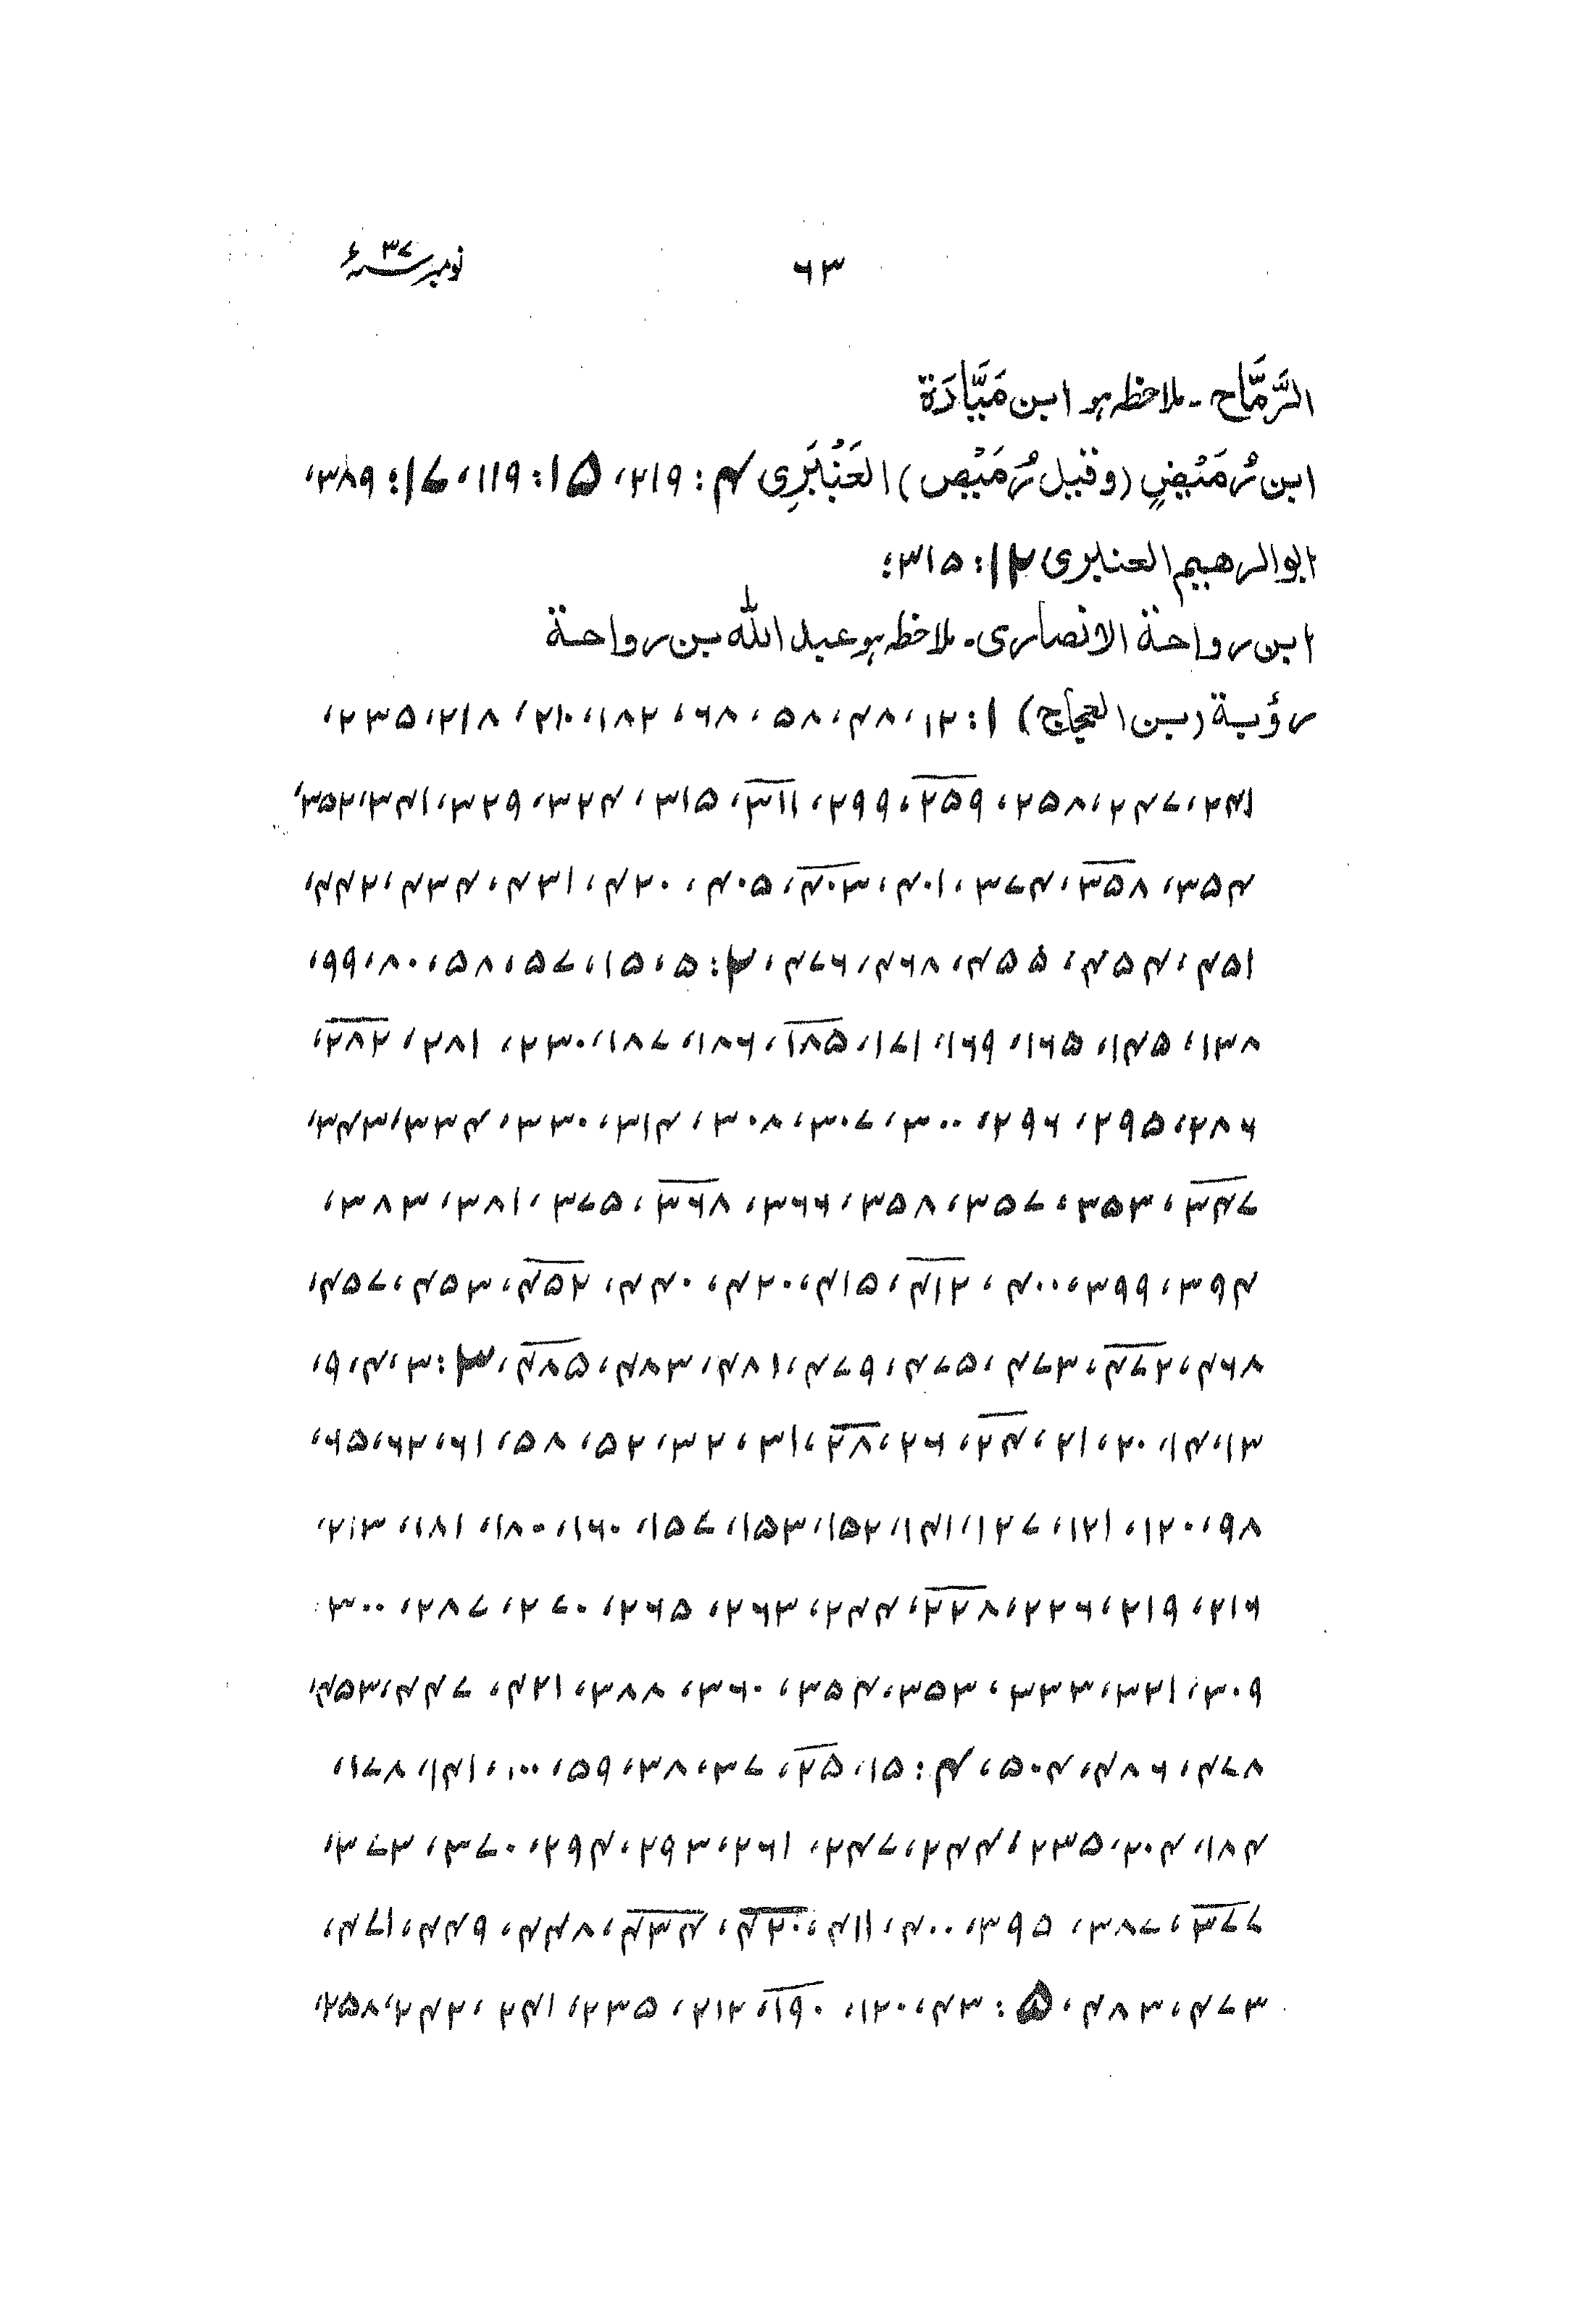 ۶۳ نومبر سنہ ۳۷ء
الرَّمَّاح - ملاحظہ ہو ابن مَیَّادَة
ابن رُمَیْضٍ (وقیل رُمَیْص) العَنْبَرِی ۴: ۲۱۹، ۱۵: ۱۱۹، ۱۷: ۳۸۹،
ابوالرھیم العنبری ۱۲: ۳۱۵؛
ابن رواحة الانصاری - ملاحظہ ہو عبد اللہ بن رواحة
رؤبة (بن العجاج) ۱: ۱۲، ۴۸، ۵۸، ۶۸، ۱۸۲، ۲۱۰، ۲۱۸، ۲۳۵،
۲۴۱، ۲۴۷، ۲۵۸، ۲۵۹، ۲۹۹، ۳۱۱، ۳۱۵، ۳۲۴، ۳۲۹، ۳۴۱، ۳۵۲،
۳۵۴، ۳۵۸، ۳۷۴، ۴۰۱، ۴۰۳، ۴۰۵، ۴۲۰، ۴۳۱، ۴۳۴، ۴۴۲،
۴۵۱، ۴۵۴، ۴۵۵، ۴۶۸، ۴۷۶، ۲: ۵، ۱۵، ۵۷، ۵۸، ۸۰، ۹۹،
۱۳۸، ۱۴۵، ۱۶۵، ۱۶۹، ۱۷۱، ۱۸۵، ۱۸۶، ۱۸۷، ۲۳۰، ۲۸۱، ۲۸۲،
۲۸۶، ۲۹۵، ۲۹۶، ۳۰۰، ۳۰۷، ۳۰۸، ۳۱۴، ۳۳۰، ۳۳۴، ۳۴۳،
۳۴۷، ۳۵۳، ۳۵۷، ۳۵۸، ۳۶۶، ۳۶۸، ۳۷۵، ۳۸۱، ۳۸۳،
۳۹۴، ۳۹۹، ۴۰۰، ۴۱۲، ۴۱۵، ۴۲۰، ۴۴۰، ۴۵۲، ۴۵۳، ۴۵۷،
۴۶۸، ۴۷۲، ۴۷۳، ۴۷۵، ۴۷۹، ۴۸۱، ۴۸۳، ۴۸۵، ۳: ۳، ۴، ۹،
۱۳، ۱۴، ۲۰، ۲۱، ۲۴، ۲۶، ۲۸، ۳۱، ۳۲، ۵۲، ۵۸، ۶۱، ۶۳، ۶۵،
۹۸، ۱۲۰، ۱۲۱، ۱۲۷، ۱۴۱، ۱۵۲، ۱۵۳، ۱۵۷، ۱۶۰، ۱۸۰، ۱۸۱، ۲۱۳،
۲۱۶، ۲۱۹، ۲۲۶، ۲۲۸، ۲۴۴، ۲۶۳، ۲۶۵، ۲۷۰، ۲۸۷، ۳۰۰
۳۰۹، ۳۲۱، ۳۳۳، ۳۵۳، ۳۵۴، ۳۶۰، ۳۸۸، ۴۲۱، ۴۴۷، ۴۵۳،
۴۷۸، ۴۸۶، ۵۰۴، ۴: ۱۵، ۲۵، ۳۷، ۳۸، ۵۹، ۱۰۰، ۱۴۱، ۱۷۸،
۱۸۴، ۲۰۴، ۲۳۵، ۲۴۴، ۲۴۷، ۲۶۱، ۲۹۳، ۲۹۴، ۳۷۰، ۳۷۳،
۳۷۷، ۳۸۷، ۳۹۵، ۴۰۰، ۴۱۱، ۴۲۰، ۴۳۴، ۴۴۸، ۴۴۹، ۴۷۱،
۴۷۳، ۴۸۳، ۵: ۴۳، ۱۲۰، ۱۹۰، ۲۱۲، ۲۳۵، ۲۴۱، ۲۴۲، ۲۵۸،